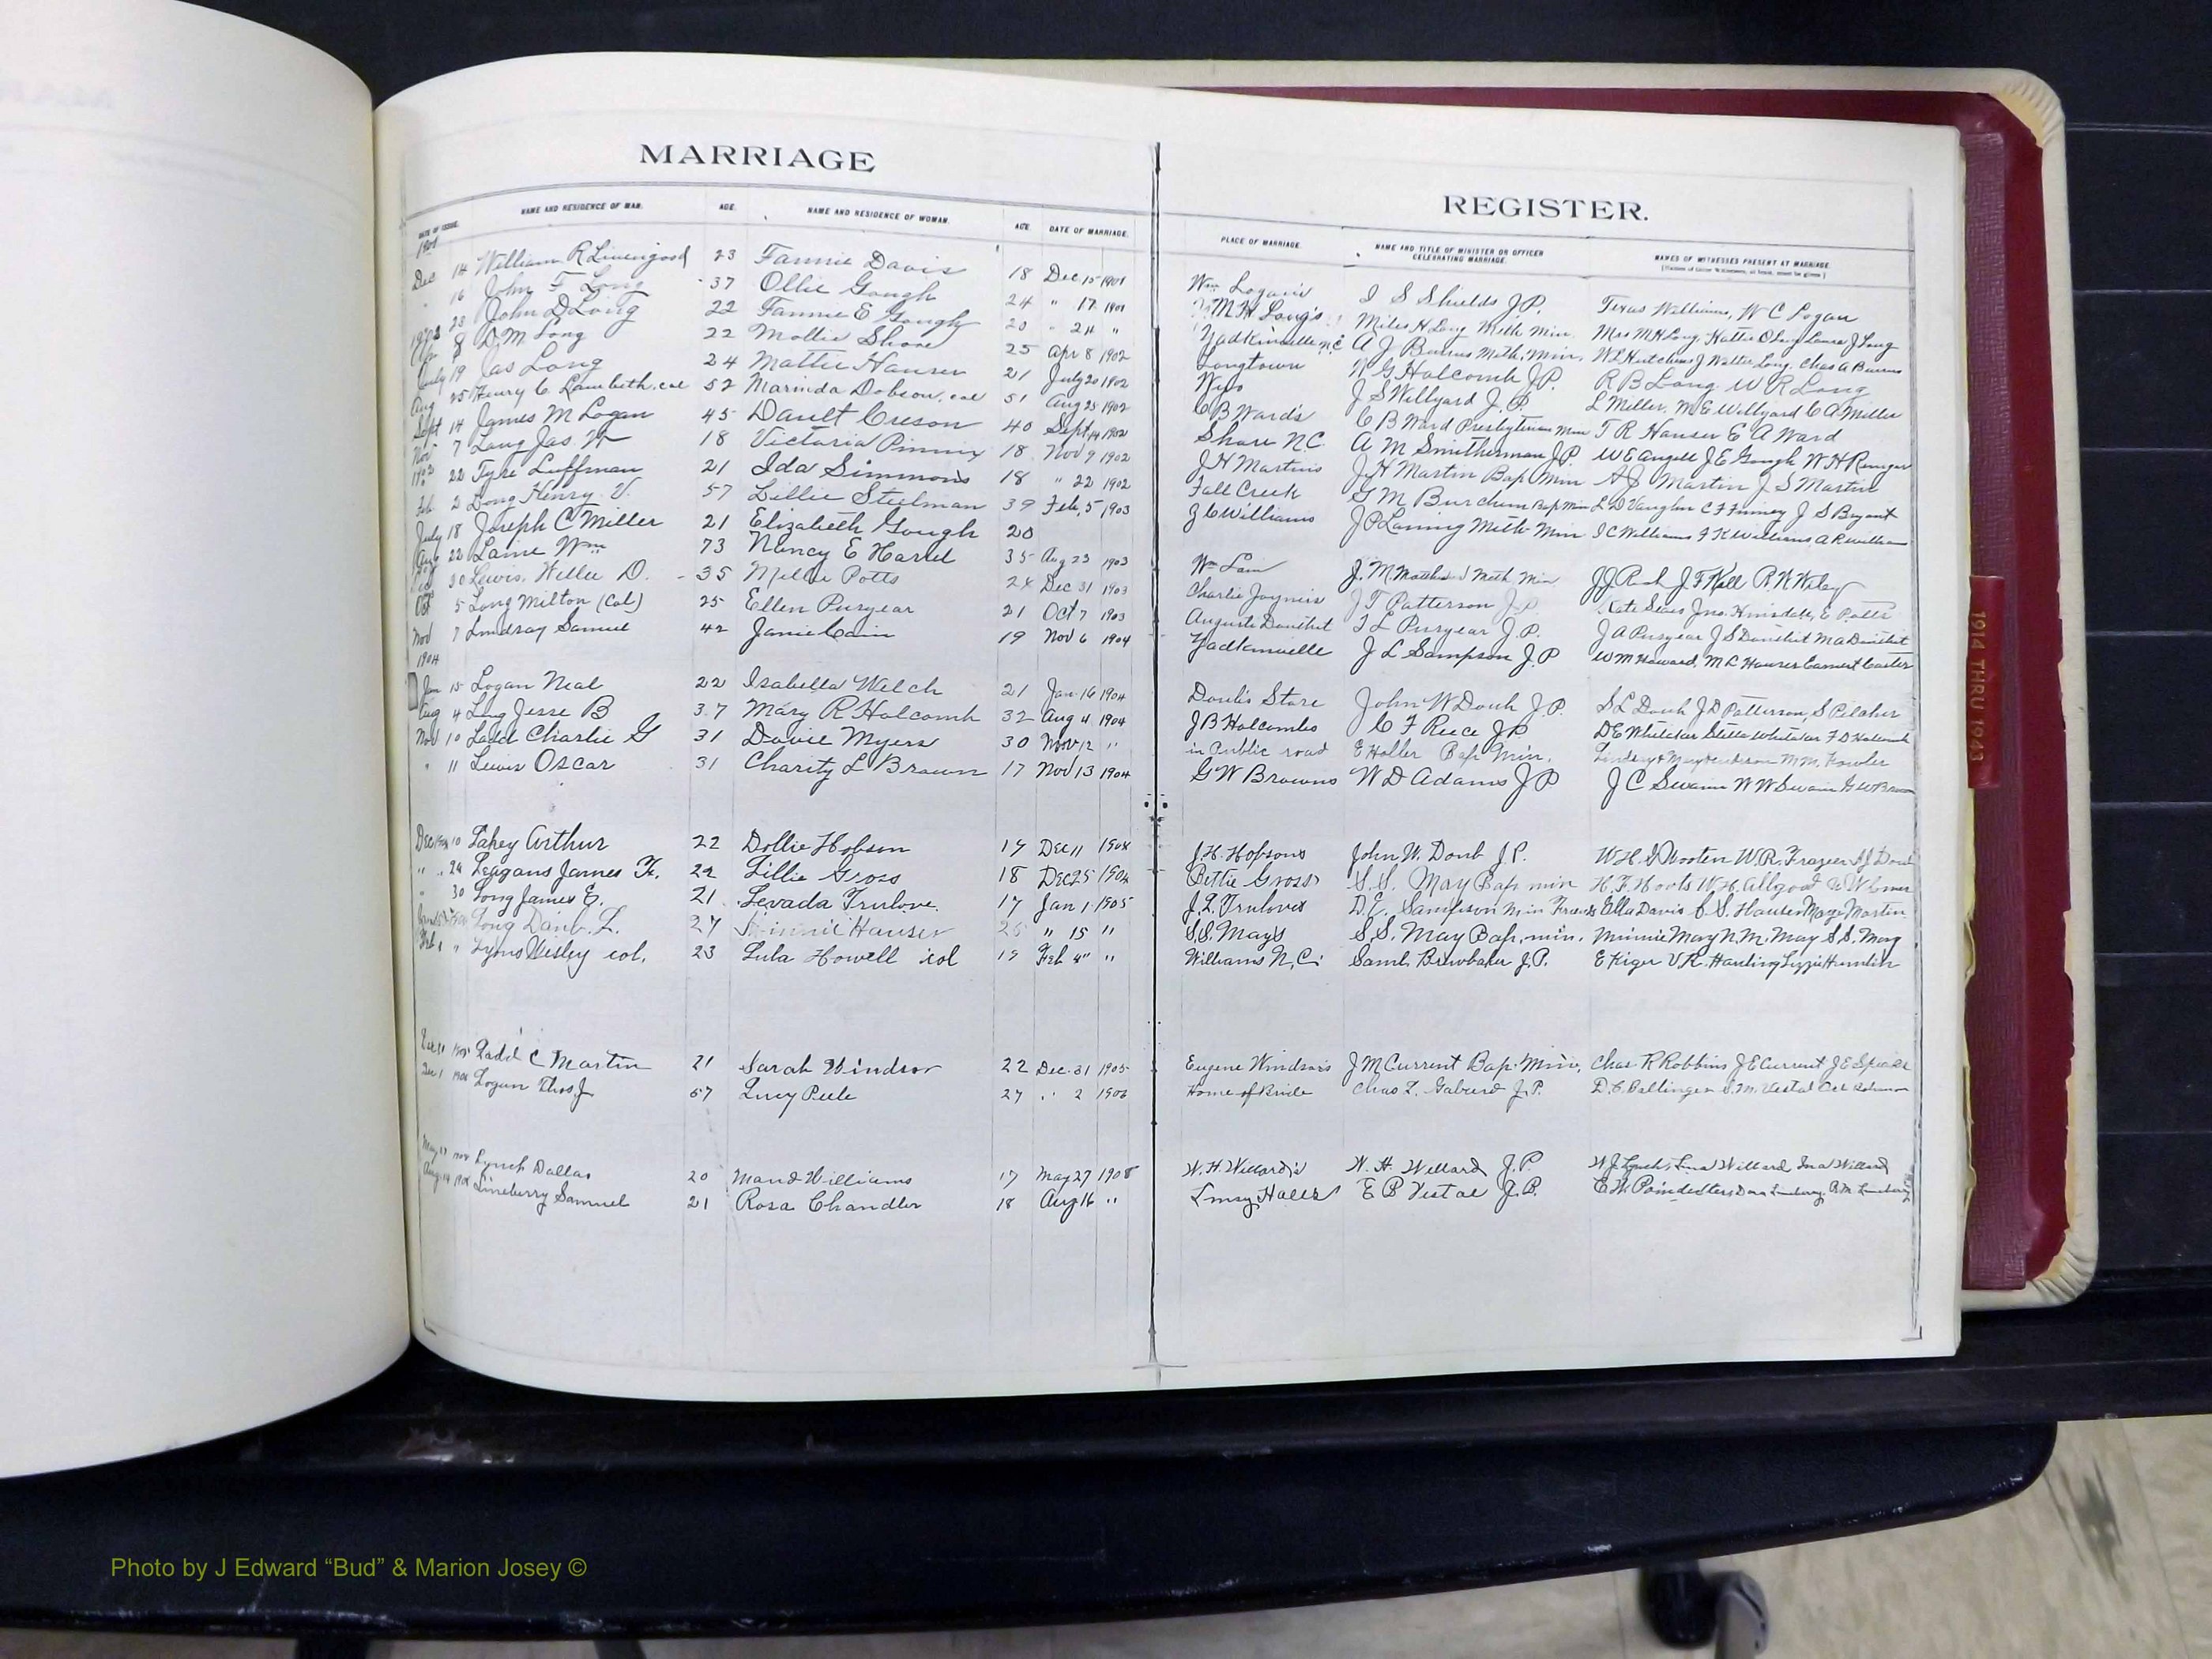 MARRIAGE
REGISTER.
DATE OF ISSUE. NAME AND RESIDENCE OF MAN. AGE. NAME AND RESIDENCE OF WOMAN. AGE. DATE OF MARRIAGE. PLACE OF MARRIAGE. NAME AND TITLE OF MINISTER OR OFFICER CELEBRATING MARRIAGE. NAMES OF WITNESSES PRESENT AT MARRIAGE.
1901
Dec 14 William R Livengood 23 Fannie Davis 18 Dec 15 1901 Wm Logan's I S Shields J.P. Texas Williams, W C Logan
" 16 John F Long 37 Ollie Gough 24 " 17 1901 M H Long's Miles H Long Meth Min. Mrs M H Long, Hattie O Long Laura J Long
23 John D Long 22 Fannie E Gough 20 " 24 " Yadkinville N.C A J Burrus Meth. Min. W L Hutchins J Walter Long. Chas A Burrus
1902
8 D.M. Long 22 Mollie Shore 25 Apr 8 1902 Longtown N G Holcomb J.P. R B Long W R Long
July 19 Jas Long 24 Mattie Hauser 21 July 20 1902 J S Willyard J.P. L Miller, M E Willyard C A Miller
Aug 25 Henry C Lambeth. col 52 Marinda Dobson, col 51 Aug 25 1902 C B Ward's C B Ward Presbyterian Min T R Hauser E A Ward
Sept 14 James M Logan 45 Creson 40 Sept 14 1902 Shore N.C. A M Smitherman J.P. W E Angell J E Gough W H
Nov 7 Long Jas. W 18 Victoria Pinnix 18 Nov 9 1902 J H Martins J H Martin Bap Min Martin J S Martin
22 Tyre Luffman 21 Ida Simmons 18 " 22 1902 Fall Creek G M Burcham Bap Min L D Vaughn C F Finney J S Bryant
Feb 2 Long Henry V. 57 Lillie Steelman 39 Feb, 5 1903 Williams J P Lanning Meth Min I C Williams
July 18 Joseph C Miller 21 Elizabeth Gough 20
Aug 22 Laine Wm 73 Nancy E 35 Aug 23 1903 Wm Lain J. M Meth Min
30 Lewis, Willie D. 35 Mollie Potts 24 Dec 31 1903 Charlie Joyners J T Patterson J.P. Kate Jno. Hinsdale, E Potts
Oct 5 Long Milton (Col) 25 Ellen Puryear 21 Oct 7 1903 Augusta Douthit T L Puryear J.P. J A Puryear J S Douthit M A Douthit
Nov 7 Lindsay Samuel 42 Janie Cain 19 Nov 6 1904 Yadkinville J L Sampson J.P W M Howard, M L Hauser Earnest Carter
1904
Jan 15 Logan Neal 22 Isabella Welch 21 Jan 16 1904 Doub's Store John W Doub J.P. S L Doub J D Patterson, S Pilcher
Aug 4 Long Jesse B 37 Mary R Holcomb 32 Aug 4 1904 J B Holcombs C F Reece J P D E Whitaker Stella Whitaker F D Holcomb
Nov 10 Ladd Charlie G 31 Dovie Myers 30 Nov 12 " in Public road E Holler Bap Min. M M. Fowler
" 11 Lewis Oscar 31 Charity L Brown 17 Nov 13 1904 G W Browns W D Adams J P J C Swann W W Swaim G W Brown
Dec 1904 10 Lakey Arthur 22 Dollie Hobson 19 Dec 11 1904 J. H. Hobsons John W. Doub J.P. W. H. Wooten W. R. Frazier
" " 24 Leagans James Fr. 22 Lillie Gross 18 Dec 25 1904 Bettie Gross S. S. May Bap min H. F. Hoots W. H. Allgood
" 30 Long James E. 21 Levada Trulove. 17 Jan 1 1905 J. L. Truloves D. E. Sampson Min Friends Ella Davis C. S. Hauser Maye Martin
Long Danl. L. 27 Minnie Hauser 26 " 15 " S.S. Mays S. S. May Bap. min. Minnie May N. M. May S. S. May
Feb 1 " Lyons Wesley col. 23 Lula Howell col 19 Feb 4" " Williams N.C. Saml. Brewbaker J.P. E Kiger V. R. Harding Lizzie Hamlin
Ladd C Martin 21 Sarah Windsor 22 Dec. 31 1905 Eugene Windsors J M Current Bap. Min. Chas R Robbins J E Current
Logan Thos J 67 Lucy Peele 27 " 2 1906 Home of Bride Chas Z. J.P. D. C. Ballinger S. M. Vestal
Lynch Dallas 20 Maud Williams 17 May 27 1908 W. H. Willard's W. H. Willard J.P. W J Lynch, Willard Ina Willard
Lineberry Samuel 21 Rosa Chandler 18 Aug 16 " E B Vestal J.P. Poindexter, Lineberry, Lineberry
1914 THRU 1943
Photo by J Edward “Bud” & Marion Josey ©